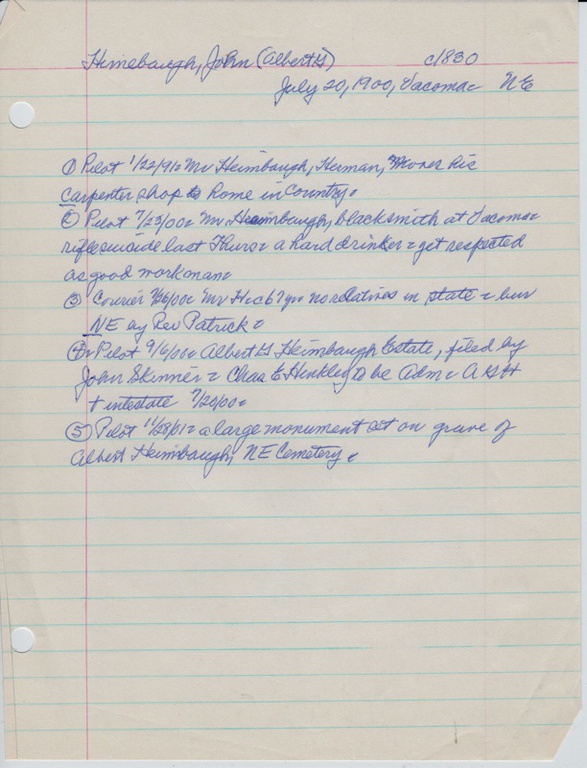 Himebaugh, John (Albert G) c/1830
July 20, 1900, Vacoma NE
① Pilot 1/22/91 Mr Heimbaugh, Herman, his
carpenter shop to Rome in County
② Pilot 7/25/00 Mr Heimbaugh, blacksmith at Vacoma
rifle suicide last Thurs a hard drinker get respected
as good workman
③ Courier 7/26/00 Mr H no relatives in state bur
NE by Rev Patrick
④ Pilot 9/6/00 Albert G Heimbaugh Estate, filed by
John Skinner Chas E Hinkley to be Adm A G H
+ intestate 7/20/00
⑤ Pilot 11/28/1 a large monument set on grave of
Albert Heimbaugh, NE Cemetery